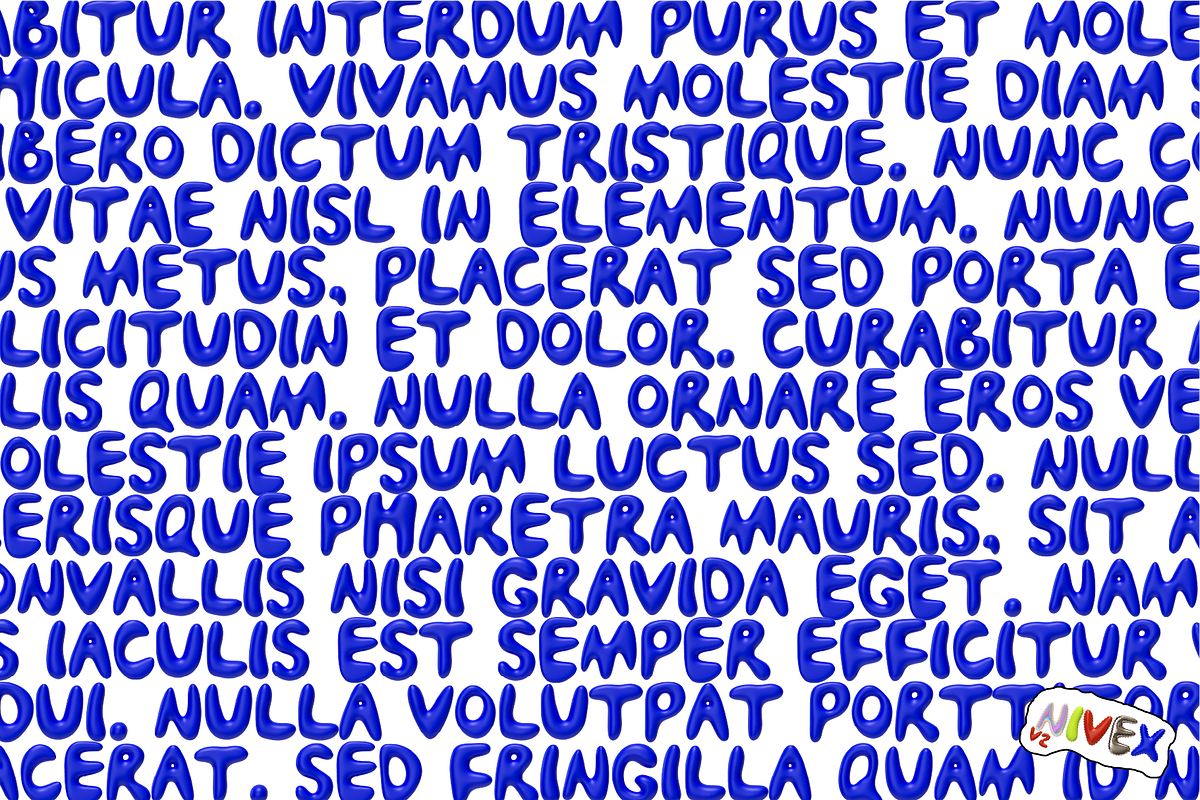 ABITUR INTERDUM PURUS ET MOLE
HICULA. VIVAMUS MOLESTIE DIAM
BERO DICTUM TRISTIQUE. NUNC C
VITAE NISL IN ELEMENTUM. NUNC
US METUS, PLACERAT SED PORTA E
LICITUDIN ET DOLOR. CURABITUR
LIS QUAM. NULLA ORNARE EROS VE
OLESTIE IPSUM LUCTUS SED. NULL
ERISQUE PHARETRA MAURIS, SIT A
ONVALLIS NISI GRAVIDA EGET. NAM
S IACULIS EST SEMPER EFFICITUR
DUI. NULLA VOLUTPAT PORTTITOR
ACERAT. SED FRINGILLA QUAM ID N
NIVEX
V2